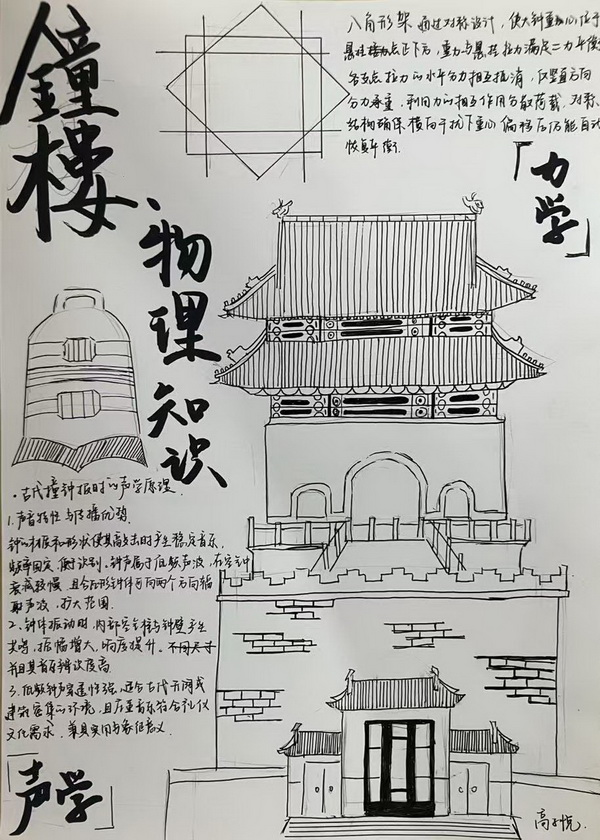 鐘樓、
物理知识
八角形架 通过对称设计，使大钟重心位于
悬挂接触点正下方，重力与悬挂拉力满足二力平衡
各支点拉力的水平分力相互抵消，仅竖直方向
分力承重，利用力的相互作用分散荷载，对称
结构确保横向干扰下重心偏移后仍能自动
恢复平衡.
「力学」
·古代撞钟报时的声学原理.
1.声音特性与传播优势.
钟的材质和形状使其敲击时产生稳定音乐.
频率固定 便于识别、钟声属于低频声波，在空气中
衰减较慢 且合瓦形钟体可向两个方向辐
射声波，扩大范围.
2、钟体振动时，内部空气柱与钟壁产生
共鸣，振幅增大，响度提升、不同尺寸
并且具首有辨识度高
3、低频钟声穿透性强，适合古代开阔或
建筑密集的环境，且厚重音乐符合礼仪
文化需求，兼具实用与象征意义.
「声学」
高子悦